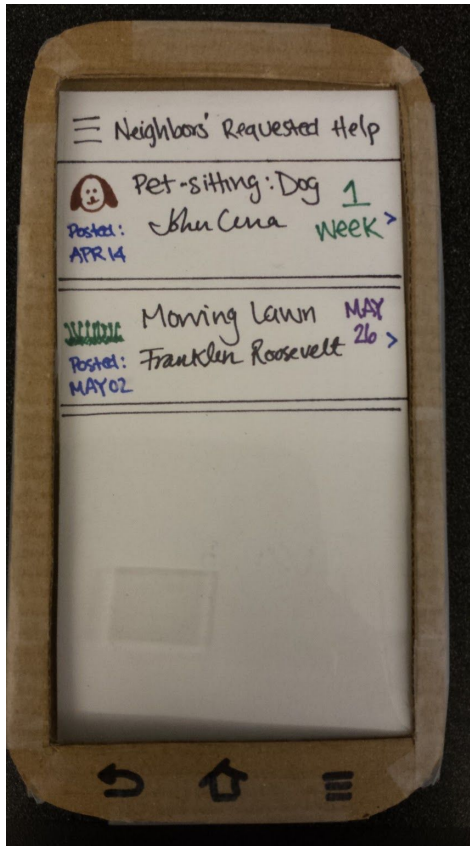 Neighbors' Requested Help
Pet-sitting: Dog
1
Week >
John Cena
Posted:
APR 14
Mowing Lawn
MAY
26 >
Franklin Roosevelt
Posted:
MAY 02